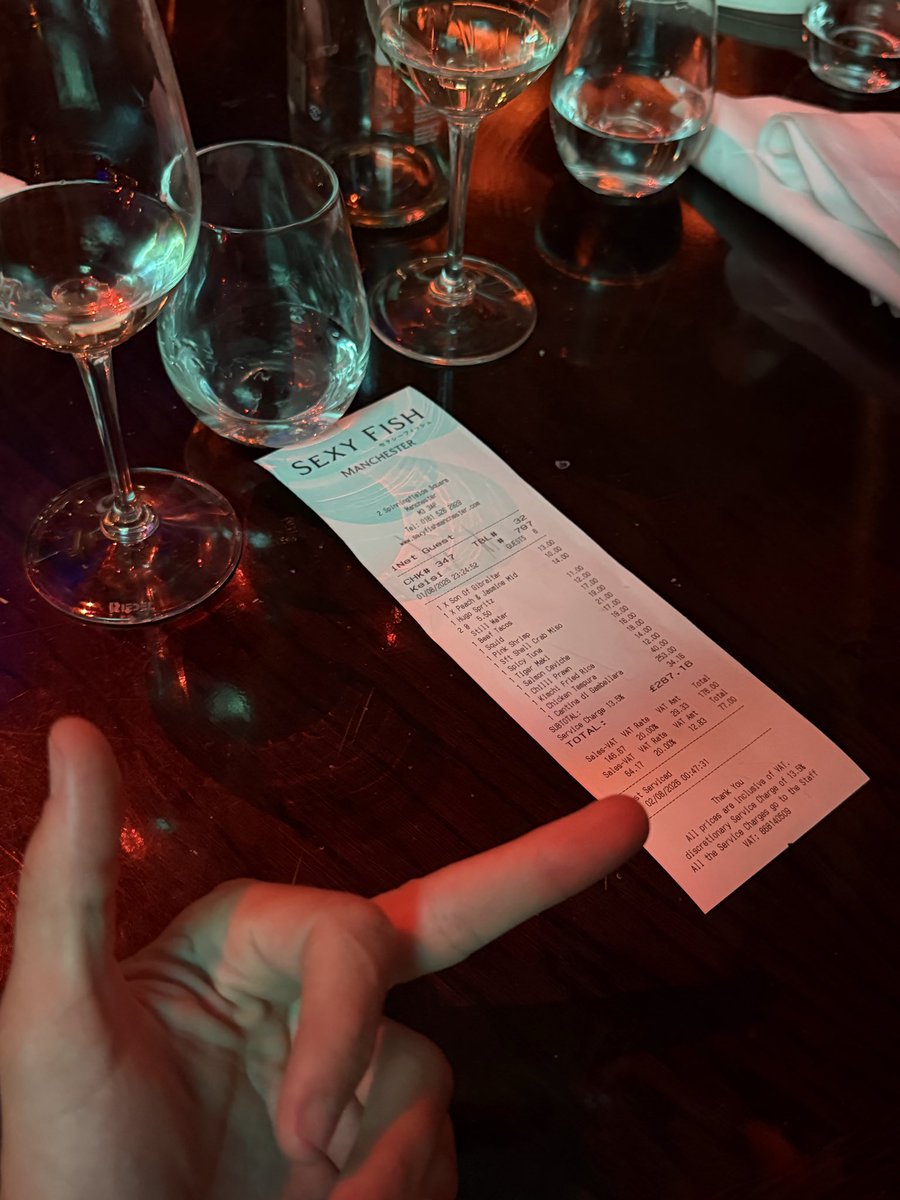 SEXY FISH
セクシーフィッシュ
MANCHESTER
2 Spinningfields Square
Manchester
M3 3AP
Tel: 0161 526 2929
www.sexyfishmanchester.com
1Net Guest TBL# 32
CHK# 347 # 797
Kelsi GUESTS 6
01/08/2026 23:24:52
1 X Son Of Gibraltar 13.00
1 X Peach & Jasmine Mid 10.00
1 Hugo Spritz 14.00
2 @ 5.50
Still Water 11.00
1 Beef Tacos 12.00
1 Squid 17.00
1 Pink Shrimp 19.00
1 Sft Shell Crab Miso 21.00
1 Spicy Tuna 17.00
1 Tiger Maki 19.00
1 Salmon Ceviche 16.00
1 Chilli Prawn 18.00
1 Kimchi Fried Rice 14.00
1 Chicken Tempura 12.00
1 Cantina di Gambellara 40.00
SUBTOTAL: 253.00
Service Charge 13.5% 34.16
TOTAL: £287.16
Sales-VAT VAT Rate VAT Amt Total
146.67 20.00% 29.33 176.00
Sales-VAT VAT Rate VAT Amt Total
64.17 20.00% 12.83 77.00
Serviced
02/08/2026 00:47:31
Thank You
All prices are inclusive of VAT.
discretionary Service Charge of 13.5%
All the Service Charges go to the Staff
VAT: 668140509